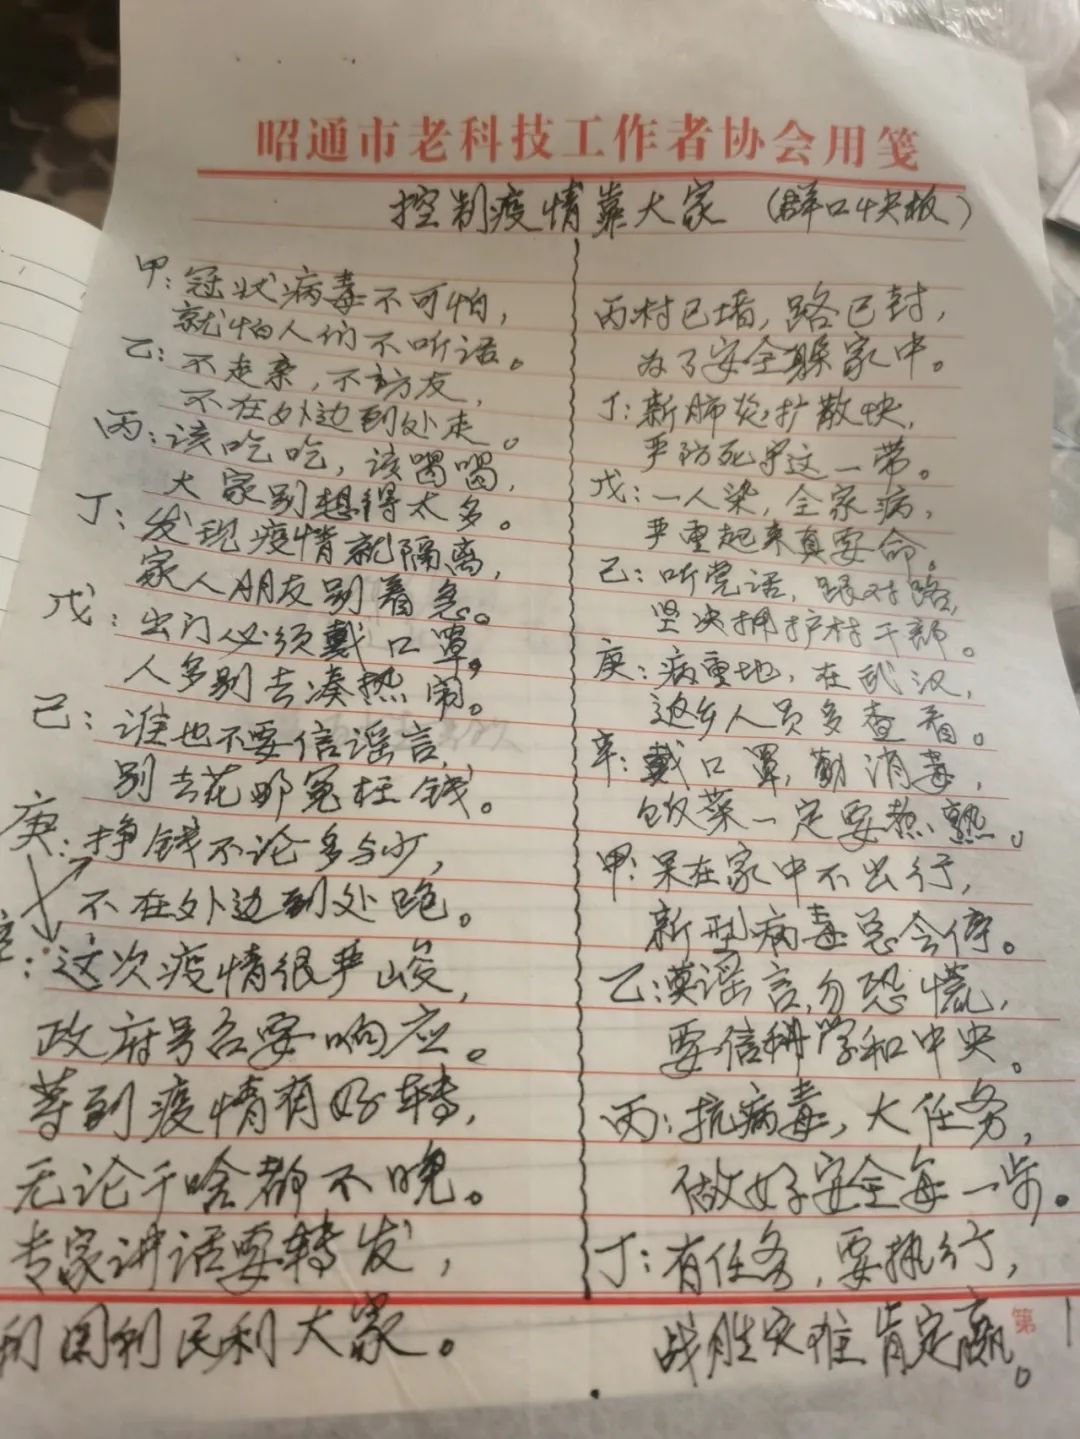 昭通市老科技工作者协会用笺
控制疫情靠大家 (群口快板)
甲:冠状病毒不可怕,
就怕人们不听话。
乙:不走亲,不访友,
不在外边到处走。
丙:该吃吃,该喝喝,
大家别想得太多。
丁:发现疫情就隔离,
家人朋友别着急。
戊:出门必须戴口罩,
人多别去凑热闹。
己:谁也不要信谣言,
别去花那冤枉钱。
庚:挣钱不论多与少,
不在外边到处跑。
这次疫情很严峻,
政府号召要响应。
等到疫情有好转,
无论干啥都不晚。
专家讲话要转发,
利国利民利大家。
丙村已堵,路已封,
为了安全躲家中。
丁:新肺炎,扩散快,
严防死守这一带。
戊:一人染,全家病,
严重起来真要命。
己:听党话,跟对路,
坚决拥护村干部。
庚:病重地,在武汉,
返乡人员多查看。
辛:戴口罩,勤消毒,
饭菜一定要热熟。
甲:呆在家中不出行,
新型病毒总会停。
乙:莫谣言,勿恐慌,
要信科学和中央。
丙:抗病毒,大任务,
做好安全每一步。
丁:有任务,要执行,
战胜灾难肯定赢。
第